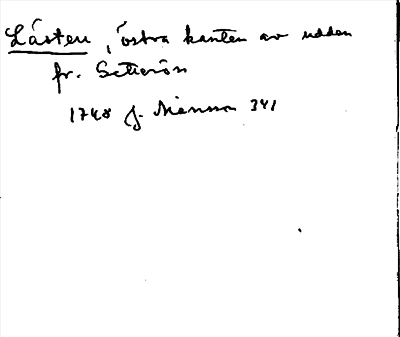 Låsten, östra kanten av udden
fr. Setterön
1748 J. Nienson 341